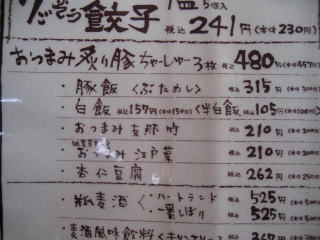 りごぞう餃子 1皿 5個入 税込241円(本体230円)
おつまみ炙り豚ちゃーしゅー3枚 税込480円(本体457円)
・豚飯〈ぶためし〉 税込315円(本体300円)
・白飯 税込157円(本体150円)〈半白飯 税込105円(本体100円)〉
・おつまみ支那竹 税込210円(本体200円)
おつまみ江戸菜 税込210円(本体200円)
・杏仁豆腐 税込262円(本体250円)
・瓶麦酒〈・ハートランド 税込525円(本体500円)
・一番しぼり 税込525円(本体500円)
・麦酒風味飲料〈キリンフリー〉 税込367円(本体350円)